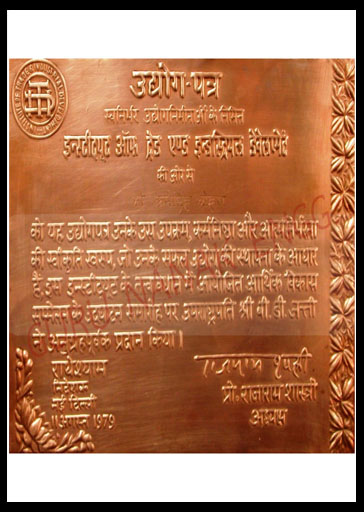 उद्योग-पत्र
स्वनिर्भर उद्योगनिर्माताओं के निमित्त
इन्स्टीट्यूट ऑफ ट्रेड एण्ड इन्डस्ट्रियल डेवेलपमेंट
की ओर से
को यह उद्योगपत्र उनके उस उपक्रम, कर्मनिष्ठा और आत्मनिर्भरता
की स्वीकृति स्वरूप, जो उनके सफल उद्योग की स्थापना के आधार
हैं, इस इन्स्टीट्यूट के तत्वावधान में आयोजित आर्थिक विकास
सम्मेलन के उद्घाटन समारोह पर उपराष्ट्रपति श्री बी. डी. जत्ती
ने अनुग्रहपूर्वक प्रदान किया।
राधेश्याम
निदेशक
नई दिल्ली
11 अगस्त 1979
प्रो. राजाराम शास्त्री
अध्यक्ष